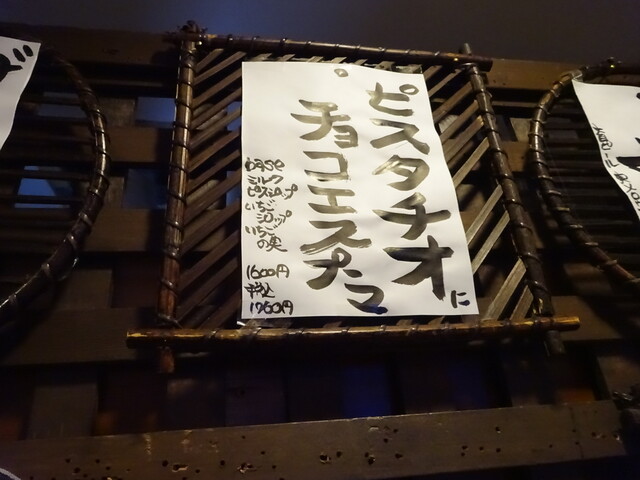 ピスタチオに
チョコエスプーマ。
base
ミルク
ピスタシロップ
いちご
シロップ
いちご
の実
1600円
税込
1760円